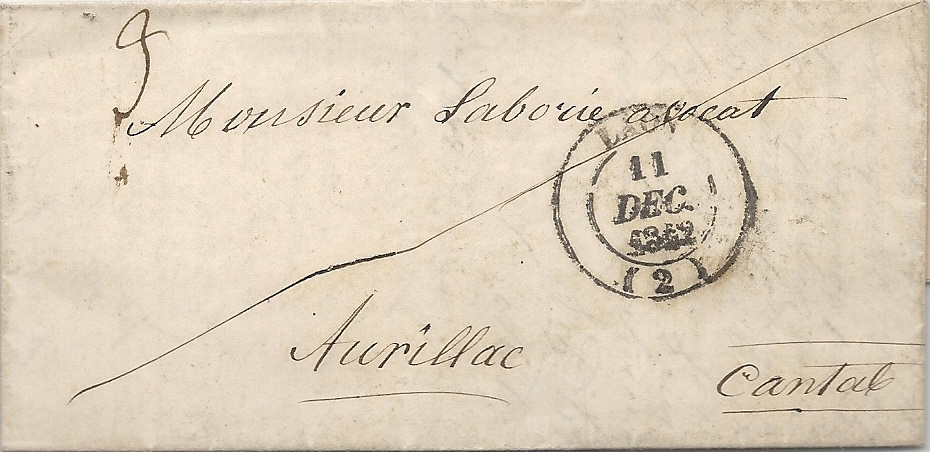 9
Monsieur Laborie avocat
11
DEC.
(2)
Aurillac
Cantal